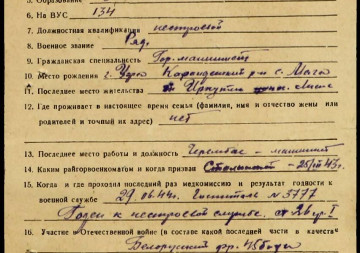 6. На ВУС 134
7. Должностная квалификация нестроевой
8. Военное звание Ряд.
9. Гражданская специальность Гор. машинист
10. Место рождения г. Уфа р-н с.
11. Последнее место жительства г. Иркутск
12. Где проживает в настоящее время семья (фамилия, имя и отчество жены или
родителей и точный их адрес) нет
13. Последнее место работы и должность Черембас - машинист
14. Каким райгорвоенкоматом и когда призван Сталинский - 25/
15. Когда и где проходил последний раз медкомиссию и результат годности к
военной службе 29.06.44г. Госпиталь № 3777
Годен к нестроевой службе.
16. Участие в Отечественной войне (в составе какой последней части и в качестве
Белорусский фр. 45